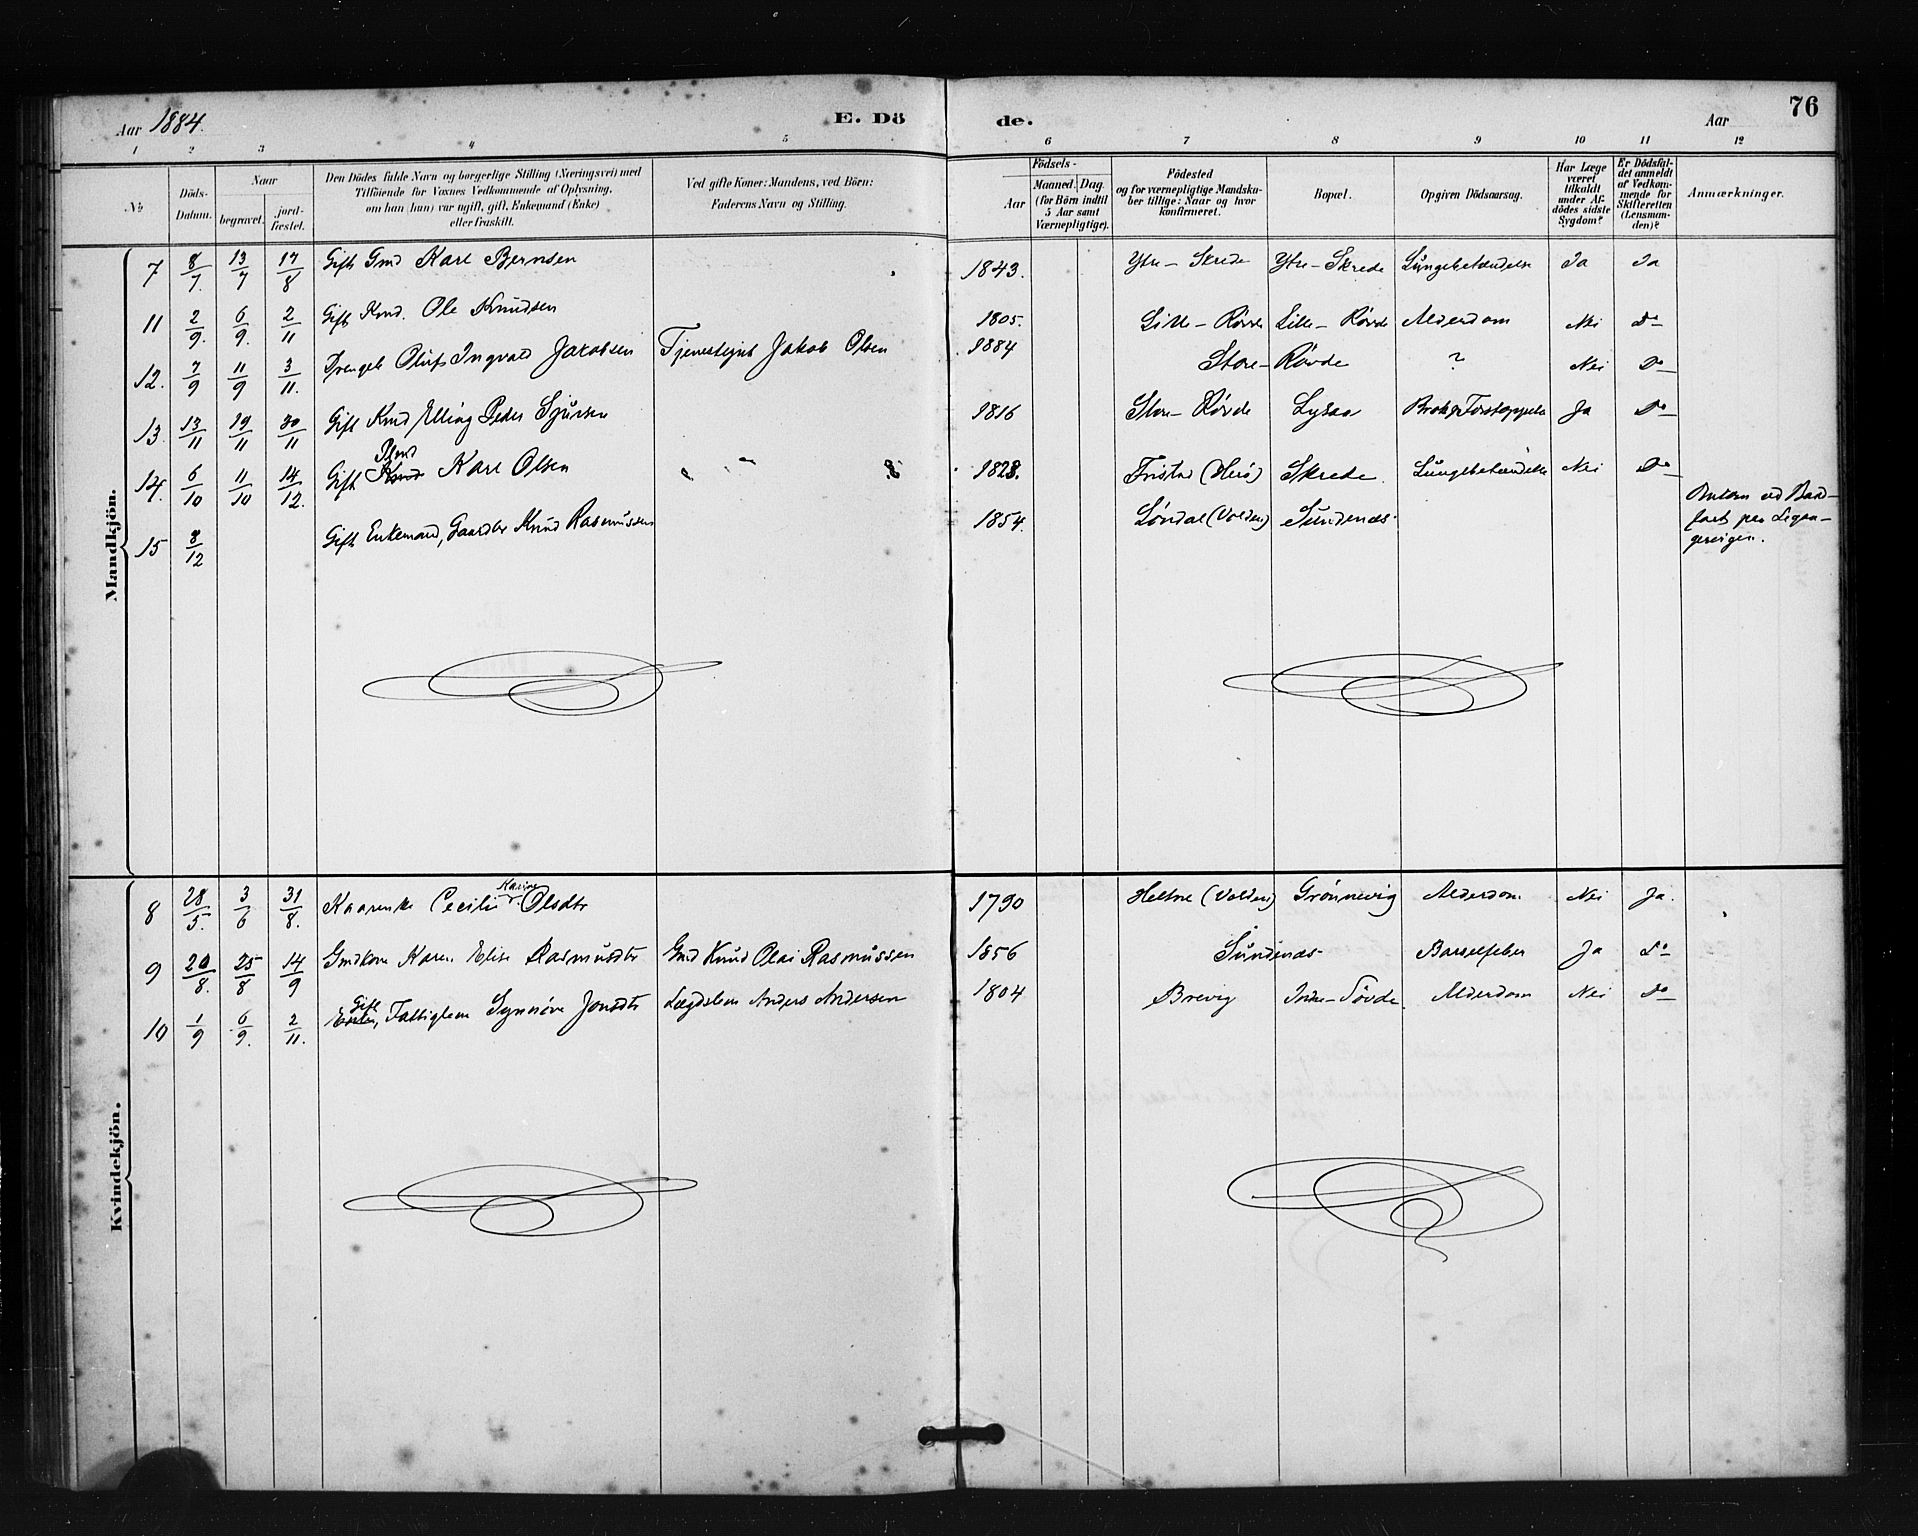 Aar 1884.
E. Dö
de.
Aar
76
1 2 3 4 5 6 7 8 9 10 11 12
No
Döds-Datum.
Naar
begravet.
jord-fæstet.
Den Dödes fulde Navn og borgerlige Stilling (Næringsvei) med
Tilföiende for Voxnes Vedkommende af Oplysning,
om han (hun) var ugift, gift, Enkemand (Enke)
eller fraskilt.
Ved gifte Koner: Mandens, ved Börn:
Faderens Navn og Stilling.
Födsels-
Aar
Maaned. Dag.
(for Börn indtil
5 Aar samt
Værnepligtige).
Födested
og for værnepligtige Mandska-
ber tillige: Naar og hvor
konfirmeret.
Bopæl.
Opgiven Dödsaarsag.
Har Læge
været
tilkaldt
under Af-
dödes sidste
Sygdom?
Er Dödsfal-
det anmeldt
af Vedkom-
mende for
Skifteretten
(Lensman-
den)?
Anmærkninger.
Mandkjön.
7 8/7. 13/7 17/8 Gift Gmd Karl Berntsen 1843. Ytre-Skrede Ytre-Skrede Lungebetændelse Ja Ja
11 2/9. 6/9. 2/11 Gift Kmd. Ole Knudsen 1805. Lille-Rövde Lille-Rövde Alderdom Nei Do
12. 7/9 11/9 3/11. Drengeb Oluf Ingvald Jakobsen Tjenestegut Jakob Olsen 1884 Store-Rövde ? Nei Do
13. 13/11 19/11 30/11 Gift Kmd Elling Peder Sjursen 1816 Store-Rövde Ja Do
14. 6/10 11/10 14/12. Gift Karl Olsen 1828. (Herö) Skrede. Lungebetændelse Nei Do
15 8/12 Gift Enkemand, Gaardbr Knud Rasmussen 1854. Löndal (Volden) Sundenæs. ved Baad-
fart paa
Kvindekjön.
8 28/5. 3/6 31/8. Cecilie Karine Olsdtr 1790 Heltne (Volden) Grönnevig Alderdom Nei Ja.
9 20/8. 25/8 14/9 Gmdkone Karen Elise Rasmusdtr Gmd Knud Olai Rasmussen 1856 Sundenæs. Barselfeber Ja Do
10 1/9 6/9. 2/11. Gift Enke, Fattiglem Synnöve Jonsdtr Lægdslem Anders Andersen 1804 Brevig Indre-Sövde. Alderdom Nei Do